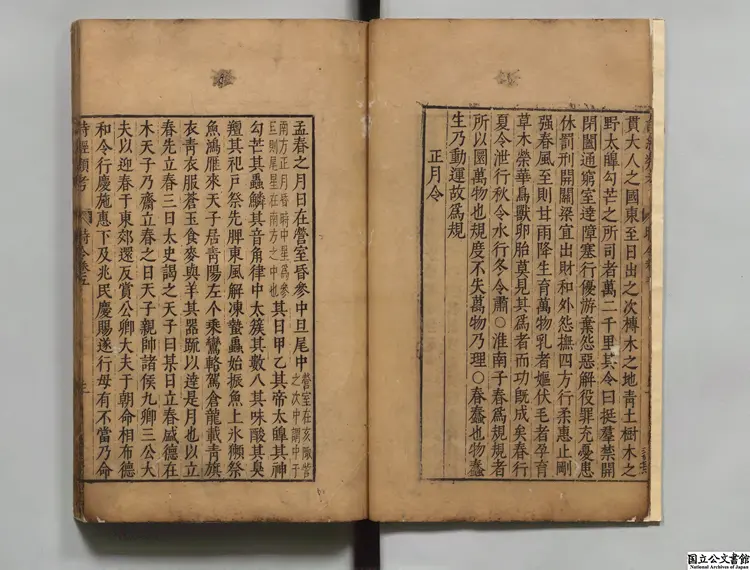 貫大人之國東至日出之次榑木之地靑土樹木之
野太皥勾芒之所司者萬二千里其令曰挺羣禁開
閉闔通窮室達障塞行優游棄怨惡解役罪充憂患
休罰刑開關梁宣出財和外怨撫四方行柔惠止剛
强春風至則甘雨降生育萬物乳者嫗伏毛者孕育
草木榮華鳥獸卵胎莫見其爲者而功旣成矣春行
夏令泄行秋令水行冬令肅○淮南子春爲規規者
所以圜萬物也規度不失萬物乃理○春蠢也物蠢
生乃動運故爲規
正月令
孟春之月日在營室昏參中旦尾中營室在亥陬訾
之次中謂中于
南方正月昏時中星爲參
旦則尾星在南方之中也其日甲乙其帝太皥其神
勾芒其蟲鱗其音角律中太簇其數八其味酸其臭
羶其祀戸祭先脾東風解凍蟄蟲始振魚上氷獺祭
魚鴻雁來天子居靑陽左个乘鸞輅駕倉龍載靑旗
衣靑衣服蒼玉食麥與羊其器䟽以達是月也以立
春先立春三日太史謁之天子曰某日立春盛德在
木天子乃齋立春之日天子親帥諸侯九卿三公大
夫以迎春于東郊還反賞公卿大夫于朝命相布德
和令行慶施惠下及兆民慶賜遂行毋有不當乃命
詩經類考 時令卷五
国立公文書館
National Archives of Japan